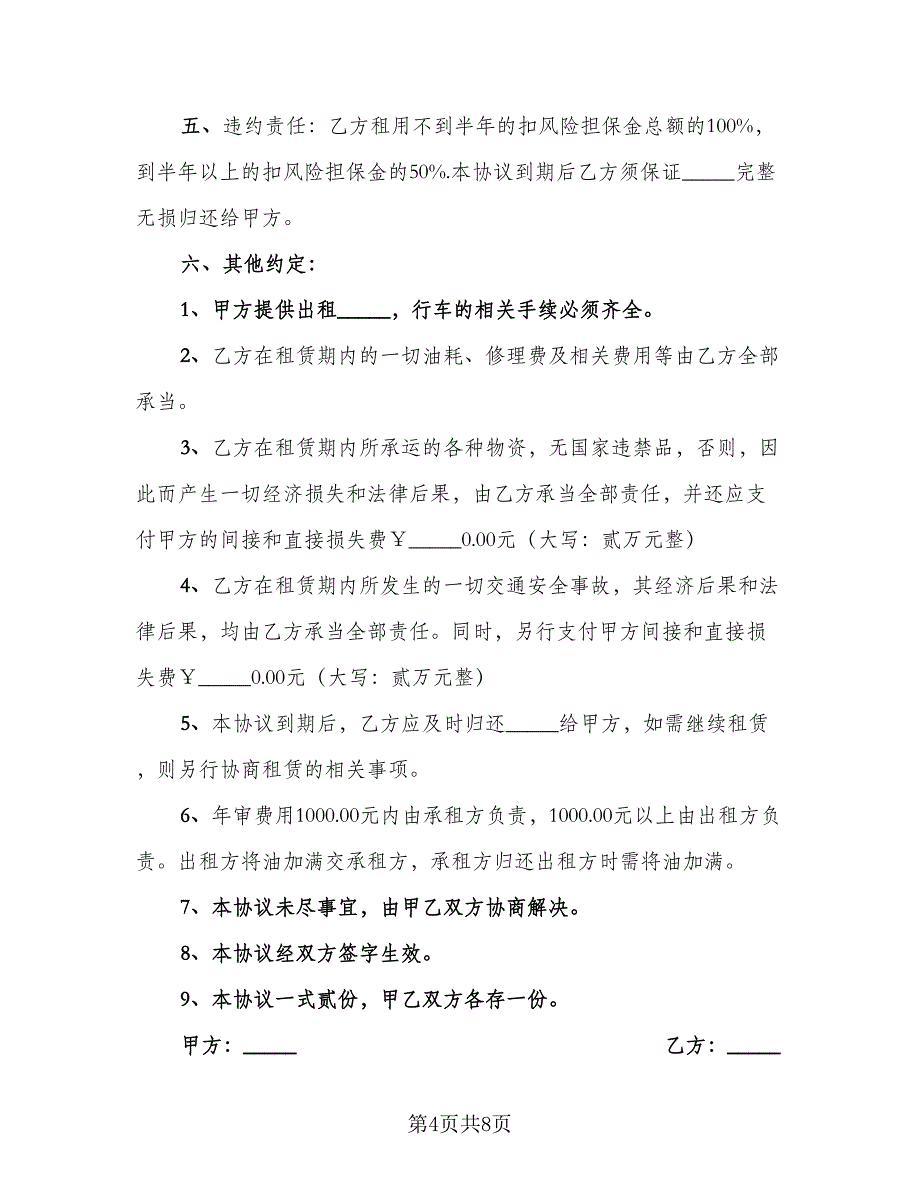 五、违约责任：乙方租用不到半年的扣风险担保金总额的100%，
到半年以上的扣风险担保金的50%.本协议到期后乙方须保证_____完整
无损归还给甲方。
六、其他约定：
1、甲方提供出租_____，行车的相关手续必须齐全。
2、乙方在租赁期内的一切油耗、修理费及相关费用等由乙方全部
承当。
3、乙方在租赁期内所承运的各种物资，无国家违禁品，否则，因
此而产生一切经济损失和法律后果，由乙方承当全部责任，并还应支
付甲方的间接和直接损失费￥_____0.00元（大写：贰万元整）
4、乙方在租赁期内所发生的一切交通安全事故，其经济后果和法
律后果，均由乙方承当全部责任。同时，另行支付甲方间接和直接损
失费￥_____0.00元（大写：贰万元整）
5、本协议到期后，乙方应及时归还_____给甲方，如需继续租赁
，则另行协商租赁的相关事项。
6、年审费用1000.00元内由承租方负责，1000.00元以上由出租方负
责。出租方将油加满交承租方，承租方归还出租方时需将油加满。
7、本协议未尽事宜，由甲乙双方协商解决。
8、本协议经双方签字生效。
9、本协议一式贰份，甲乙双方各存一份。
甲方：_____ 乙方：_____
第4页共8页